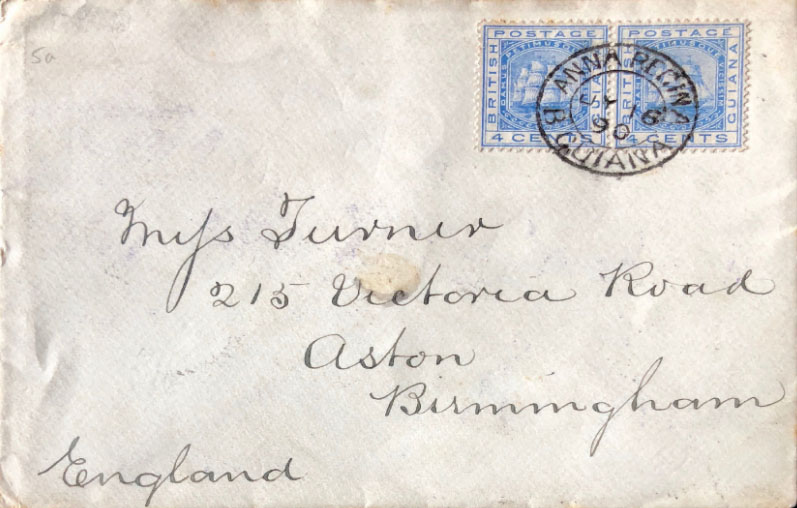 5a
BRITISH POSTAGE GUIANA 4 CENTS
BRITISH POSTAGE GUIANA 4 CENTS
ANNA REGINA
16
90
B. GUIANA
Miss Turner
215 Victoria Road
Aston
Birmingham
England